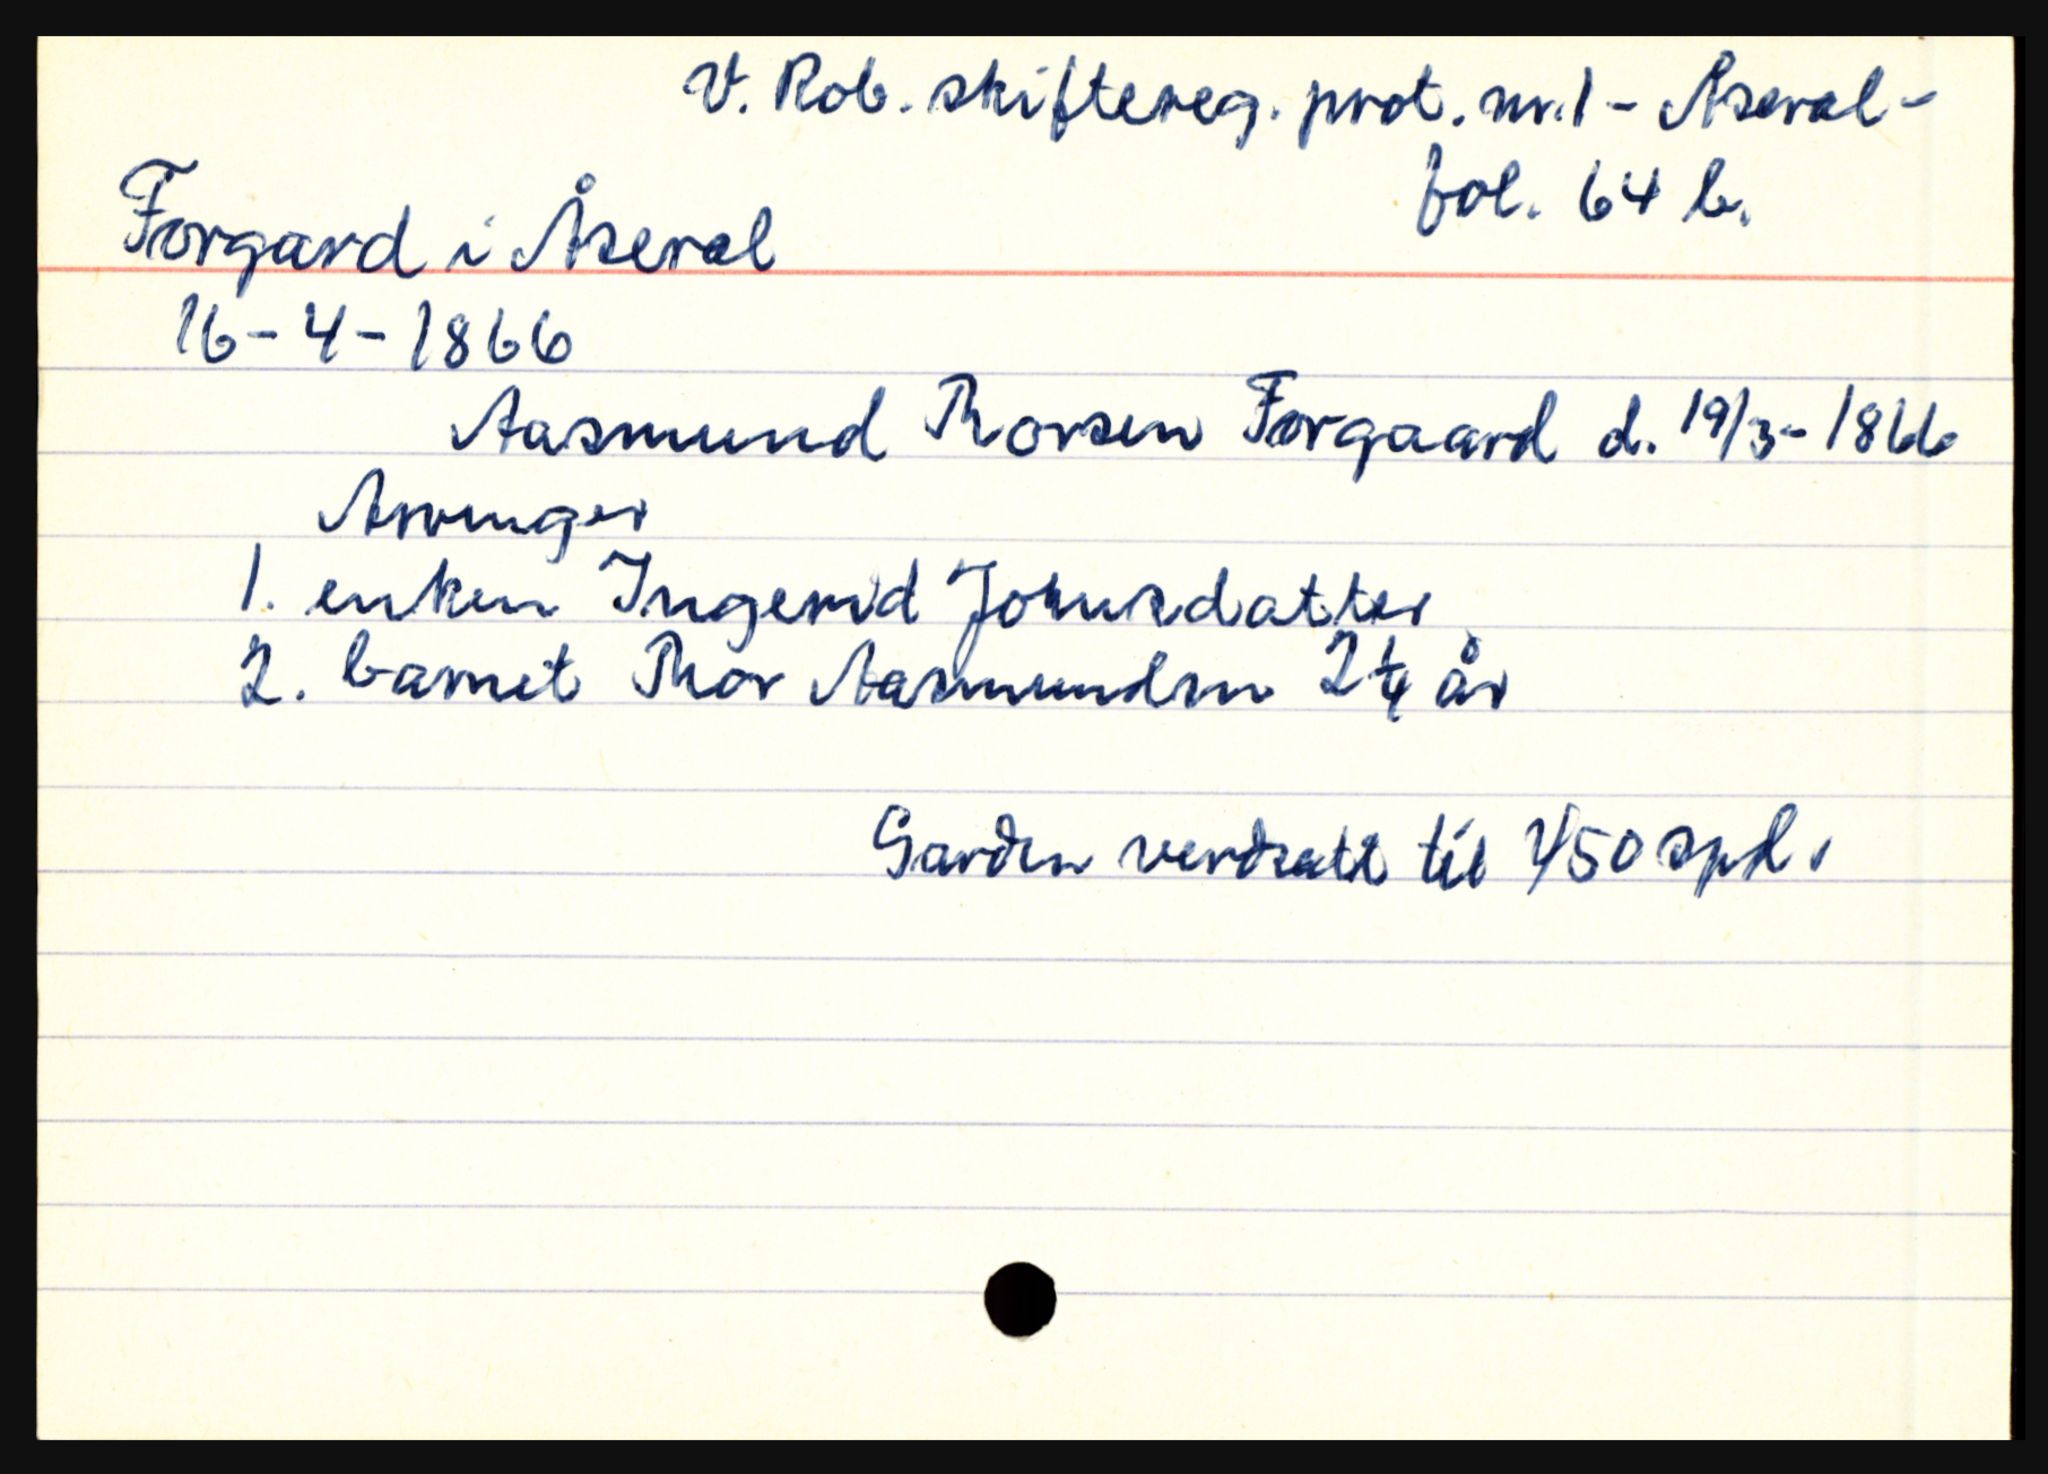 V. Rob. skiftereg. prot. nr. 1 - Åseral -
fol. 64 b.
Forgard i Åseral
16 - 4 - 1866
Aasmund Thorsen Forgaard d. 19/3 - 1866
Arvinger
1. enken Ingerid Johnsdatter
2. barnet Thor Aasmundsen 2 1/4 år
Garden verdsatt til 450 spd.